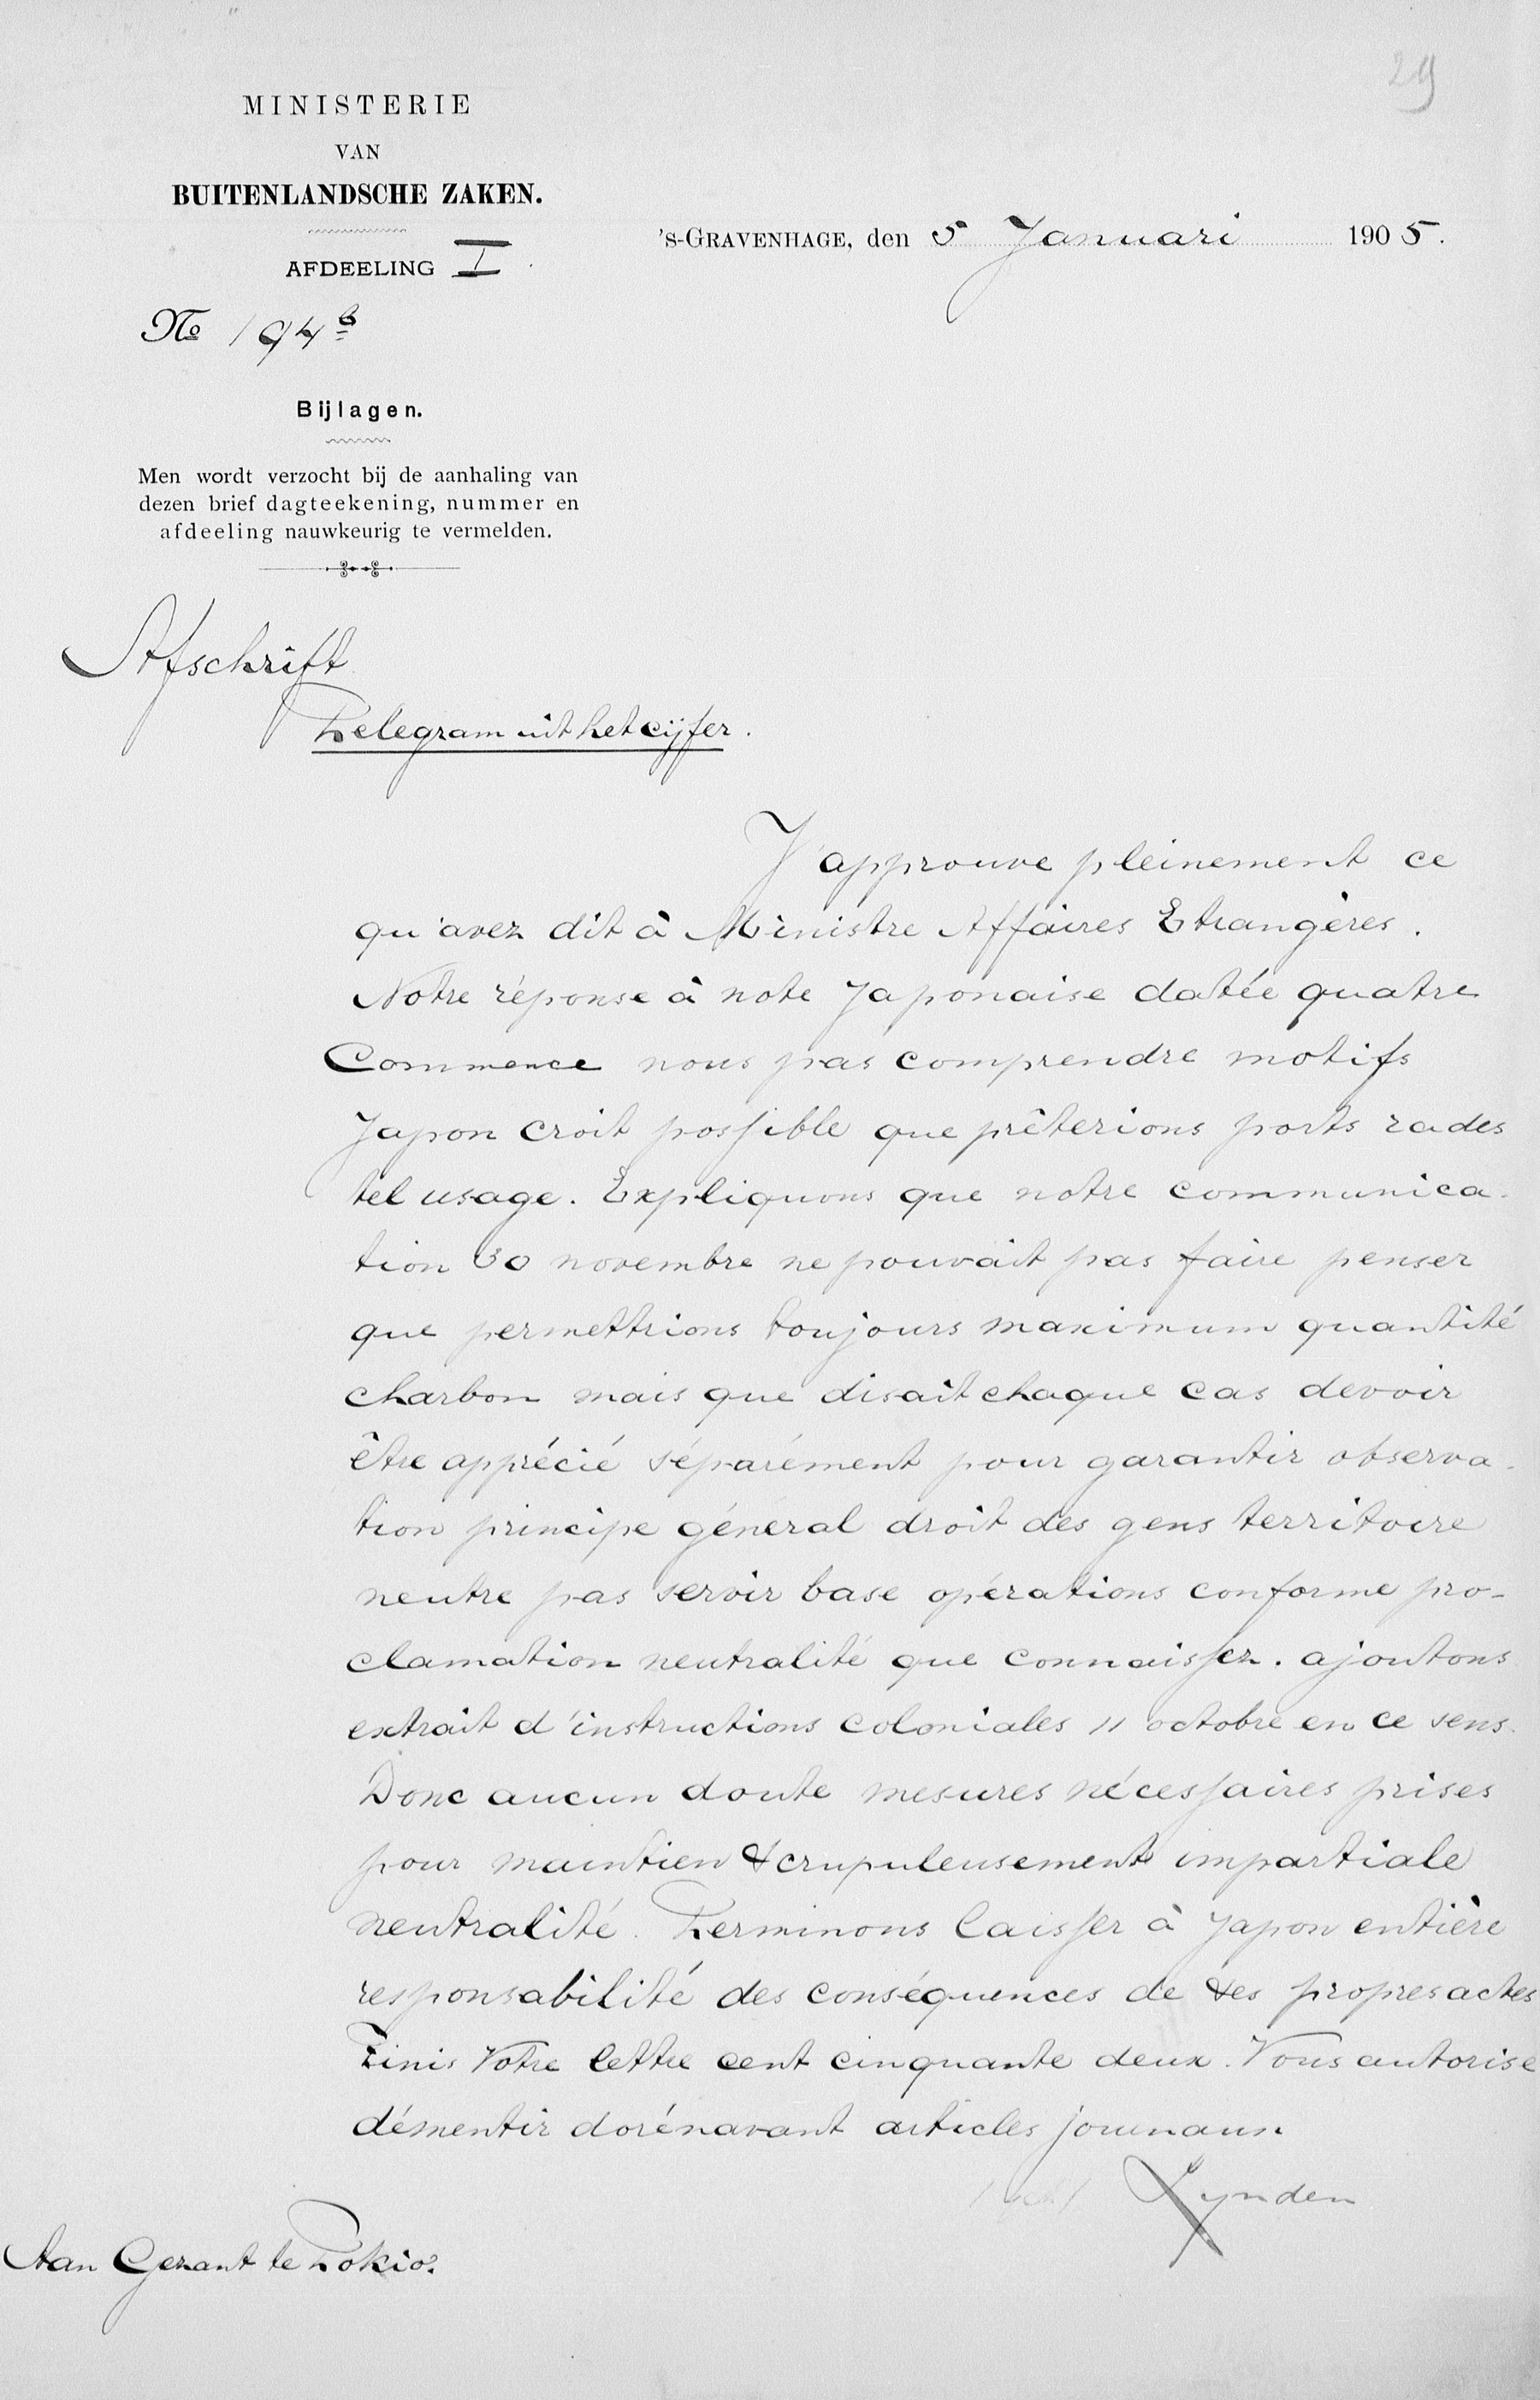 29
MINISTERIE
VAN
BUITENLANDSCHE ZAKEN.
AFDEELING I
's-GRAVENHAGE, den 5 Januari 1905.
No 194 b
Bijlagen.
Men wordt verzocht bij de aanhaling van
dezen brief dagteekening, nummer en
afdeeling nauwkeurig te vermelden.
Afschrift
Telegram uit het cijfer.
J'approuve pleinement ce
qu'avez dit à Ministre Affaires Etrangères.
Notre réponse à note Japonaise datée quatre
Commence nous pas comprendre motifs
Japon croit possible que prêterions ports rades
tel usage. Expliquons que notre communica-
tion 30 novembre ne pouvait pas faire penser
que permettrions toujours maximum quantité
charbon mais que disait chaque cas devoir
être apprécié séparément pour garantir observa-
tion principe général droit des gens territoire
neutre pas servir base opérations conforme pro-
clamation neutralité que connaissez. ajoutons
extrait d'instructions coloniales 11 octobre en ce sens.
Donc aucun doute mesures nécessaires prises
pour maintien scrupuleusement impartiale
neutralité. Terminons laisser à Japon entière
responsabilité des conséquences de ses propres actes
Finis Votre lettre cent cinquante deux. Vous autorise
démentir dorénavant articles journaux
Lynden
Aan Gezant te Tokio.